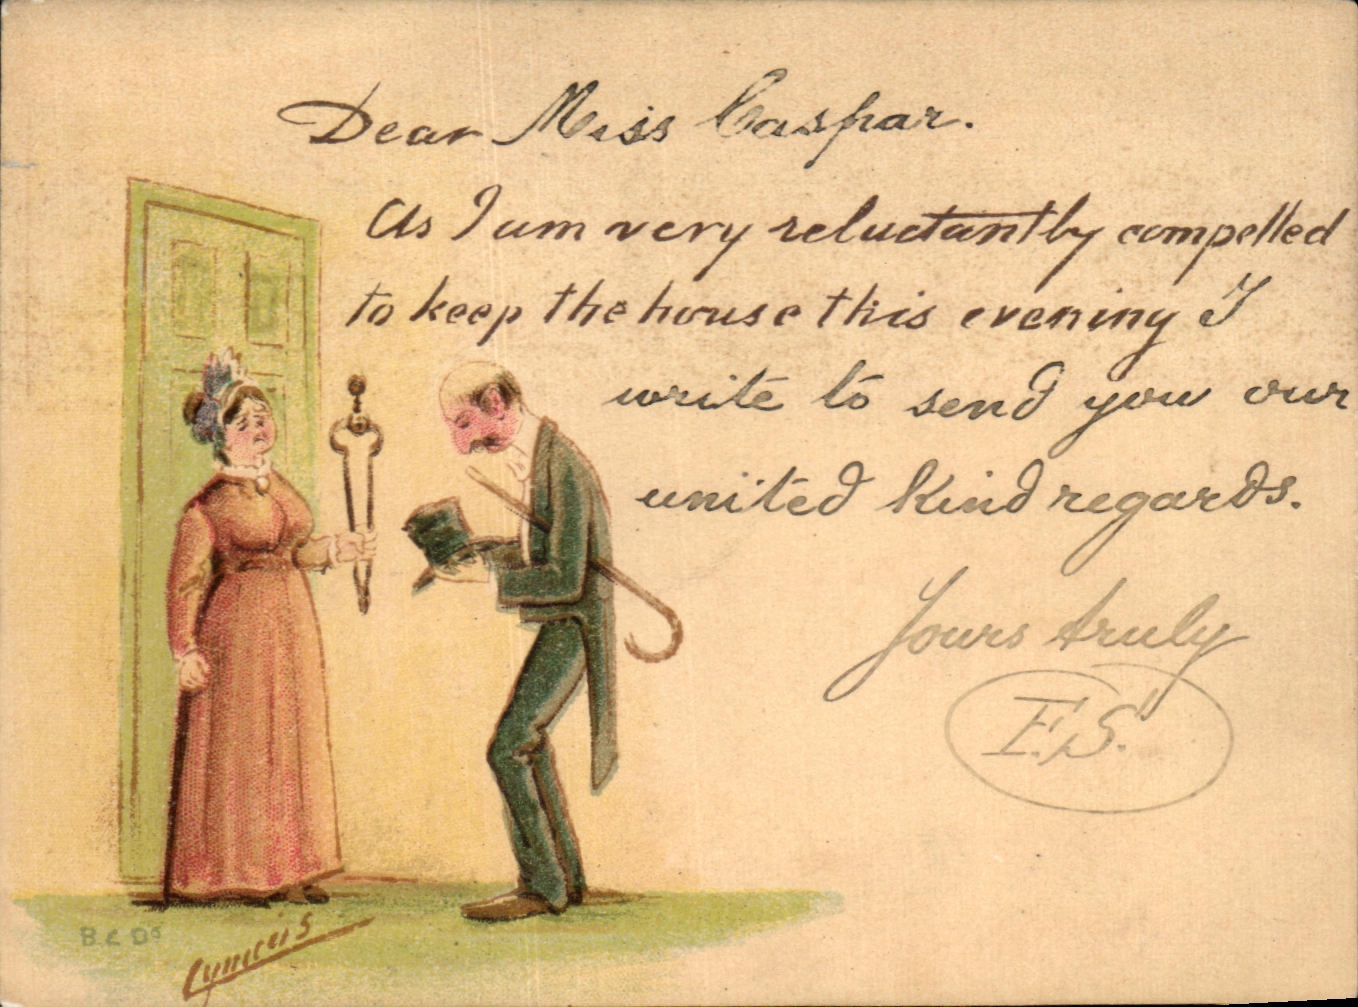 Dear Miss Caspar.
As I am very reluctantly compelled
to keep the house this evening I
write to send you our
united kind regards.
Yours truly
F.S.
B. & D.
Cynicus